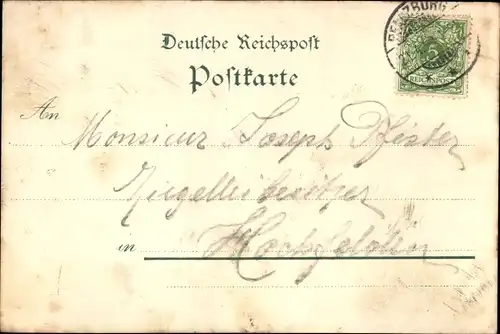 Deutsche Reichspost
Postkarte
An Monsieur Joseph Pfister
Ziegelleibesitzer
in Hochfelden
5
REICHSPOST